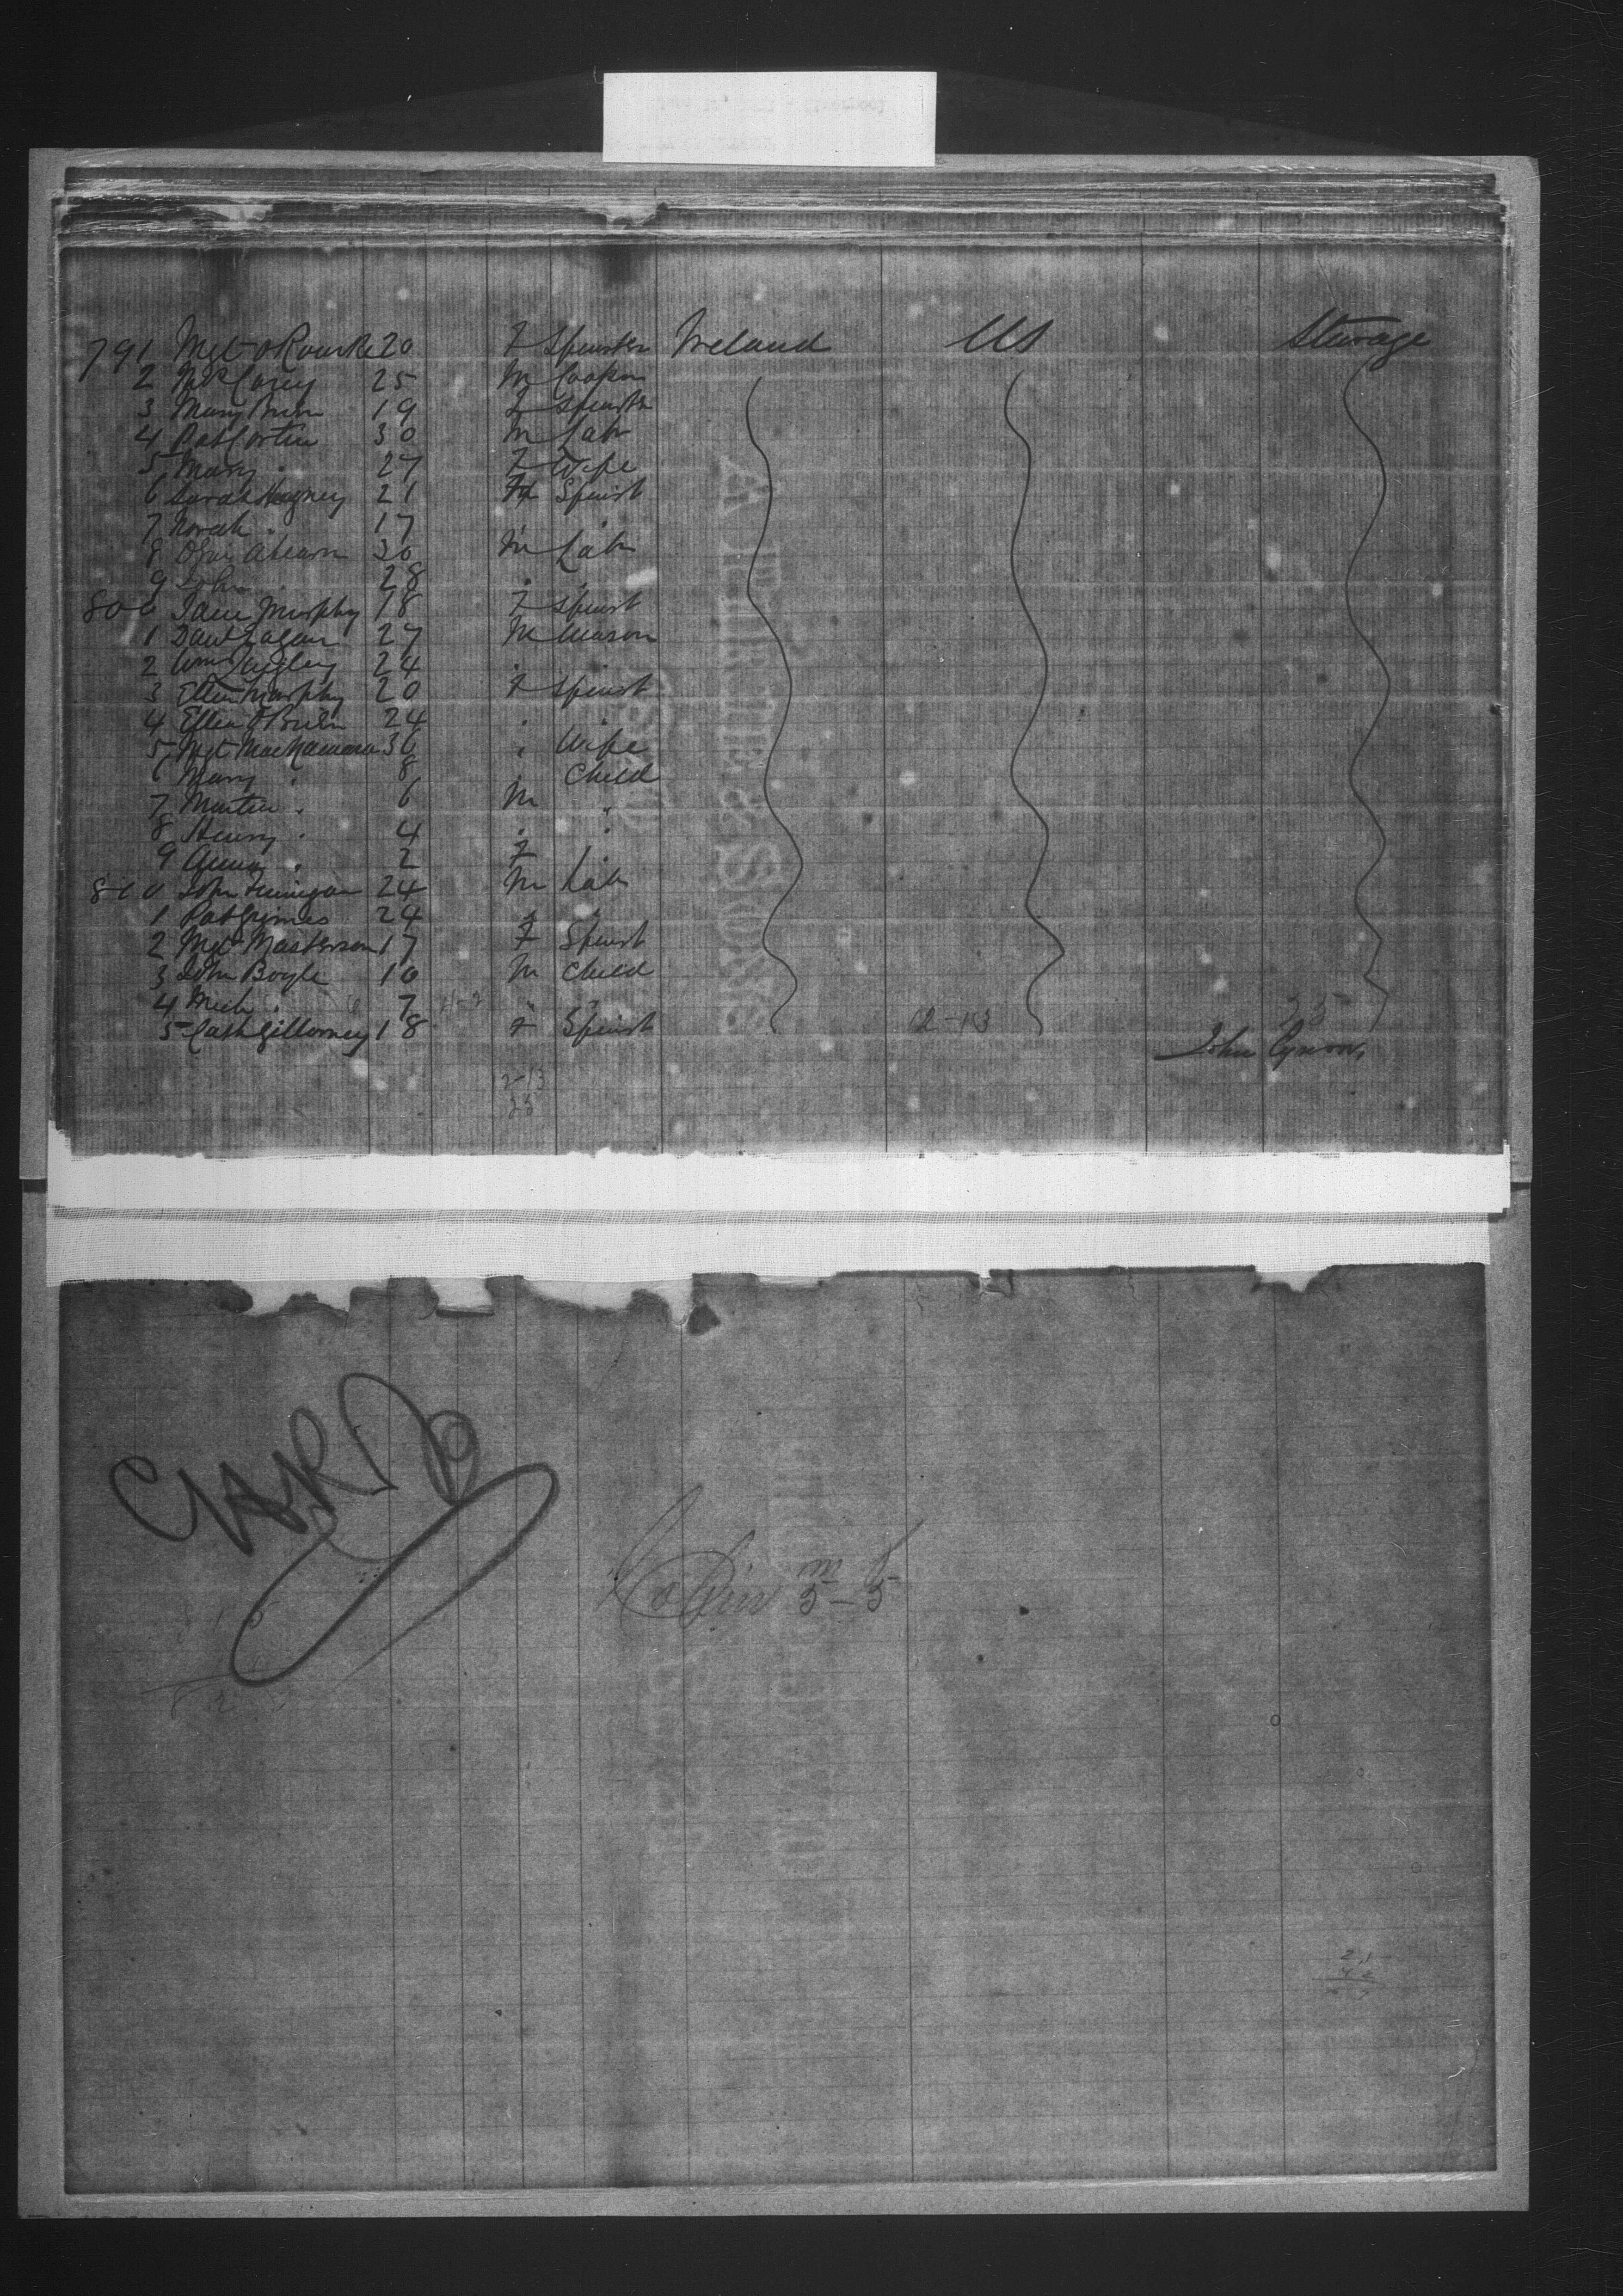 791 Mgt O Rourke 20 F Spinster Ireland US Steerage
2 Corey 25 M Cooper
3 Mary 19 F Spinster
4 Pat Cortin 30 M Lab
5 Mary " 27 F Wife
6 Sarah Hagney 21 F Spinst
7 Norah " 17 "
8 Ahearn 30 M Lab
9 John " 28 " "
800 Jane Murphy 18 F Spinst
1 Davd Eagan 27 M Mason
2 Wm Quigley 24 " "
3 Ellen Murphy 20 F Spinst
4 Ellen O'Brien 24 " "
5 Mgt MacNamara 36 " Wife
6 Mary " 8 " Child
7 Martin " 6 M "
8 Henry " 4 " "
9 Anny " 2 F "
810 John Finnigan 24 M Lab
1 Pat Grimes 24 " "
2 Mgt Masterson 17 F Spinst
3 John Boyle 10 M Child
4 Mich " 7 " "
5 Cath Gillorney 18 F Spinst 12-13 25
John
2-13
25
CARD
Cabin m 5 - f 5